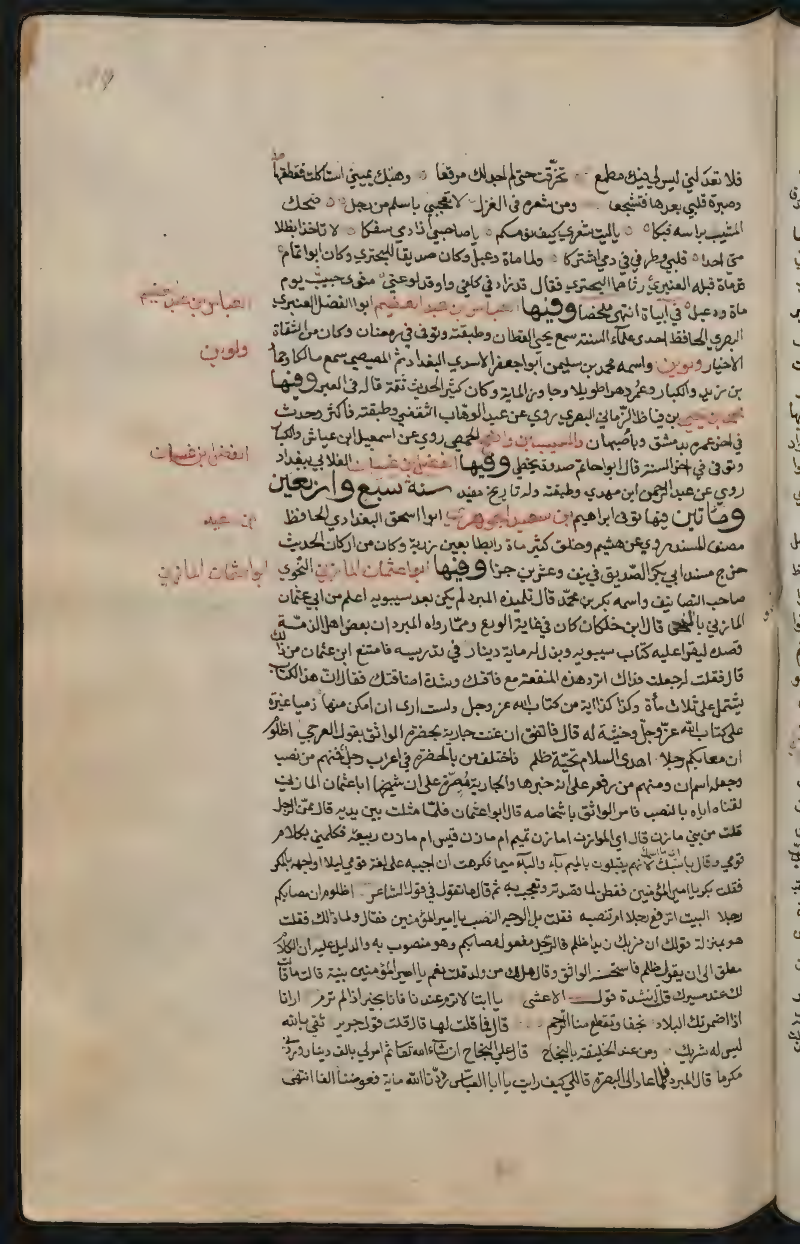 فلا تعدلني ليس لي فيك مطمع تخرقت حتى لم اجد لك مرقعا وهبك يميني استاكلت فقطعتها
وصبرة قلبي بعدها فتشجعا ومن شعره في الغزل لا تعجبي يا سلم من رجل ضحك
المشيب براسه فبكا يا ليت شعري كيف نومكم يا صاحبي اذا دمي سفكا لا تاخذا بظلا
متي احدا قلبي وطرفي في دمي اشتركا ولما مات دعبل وكان صديقا للبحتري وكان ابو تمام
قد مات قبله رثاهما البحتري فقال قد زاد في كلفي واوقد لوعتي مثوى حبيب يوم
مات ودعبل في ابيات انتهى ملخصا وفيها عباس بن عبد العظيم ابو الفضل العنبري
البصري الحافظ احد علماء السنة سمع يحيى القطان وطبقته وتوفى في رمضان وكان من الثقاة
الاخيار ولوين واسمه محمد بن سليمن ابو جعفر الاسدي البغدادي ثم المصيصي سمع مالكا وحما
بن زيد والكبار وعمر دهرا طويلا وجاوز الماية وكان كثير الحديث ثقة قاله في العبر وفيها
محمد بن يحيى بن فياظ الزماني البصري يروي عن عبد الوهاب الثقفي وطبقته فاكثر وحدث
في اخر عمره بدمشق وباصبهان والمسيب بن واضح الحمصي روى عن اسمعيل ابن عياش والكبا
وتوفى في اخر السنة قال ابو حاتم صدوق يخطي وفيها المفضل بن غسان الغلابي ببغداد
روى عن عبد الرحمن ابن مهدي وطبقته وله تاريخ مفيد سنة سبع واربعين
وماتين فيها توفى ابراهيم بن سعيد الجوهري ابو اسحق البغدادي الحافظ
مصنف المسند روى عن هشيم وخلق كثير مات رابطا بعين زربة وكان من اركان الحديث
خرج مسند ابي بكر الصديق في نيف وعشرين جزا وفيها ابو عثمان المازني النحوي
صاحب التصانيف واسمه بكر بن محمد قال تلميذه المبرد لم يكن بعد سيبويه اعلم من ابي عثمان
المازني بالنحو قال ابن خلكان كان في غاية الورع ومما رواه المبرد ان بعض اهل الذمة
قصده ليقرا عليه كتاب سيبويه وبذل له ماية دينار في تدريسه فامتنع ابو عثمان من ذلك
قال فقلت له جعلت فداك اترد هذه المنفعة مع فاقتك وشدة اضاقتك فقال ان هذا الكتاب
يشتمل على ثلاث مأة وكذا كذا اية من كتاب الله عز وجل ولست ارى ان امكن منها ذميا غيرة
على كتاب الله عز وجل وحمية له قال فاتفق ان غنت جارية بحضرة الواثق بقول العرجي اظلوم
ان مصابكم رجلا اهدى السلام تحية ظلم فاختلف من بالحضرة في اعراب رجل فمنهم من نصب
وجعله اسم ان ومنهم من رفعه على انه خبرها والجارية مصرة على ان شيخها ابا عثمان المازني
لقنها اياه بالنصب فامر الواثق باشخاصه قال ابو عثمان فلما مثلت بين يديه قال ممن الرجل
قلت من بني مازن قال اي الموازن امازن تميم ام مازن قيس ام مازن ربيعة فكلمني بكلام
قومي وقال باسبك لانهم يقلبون الميم باء والباء ميما فكرهت ان اجيبه على لغة قومي ليلا اواجهه بالمكر
فقلت بكر يا امير المؤمنين ففطن لما قصدته وتعجب به ثم قال ما تقول في قول الشاعر اظلوم ان مصابكم
رجلا البيت اترفع رجلا ام تنصبه فقلت بل الوجه النصب يا امير المؤمنين فقال ولم ذلك فقلت
هو بمنزلة قولك ان ضربك زيدا ظلم فالرجل مفعول مصابكم وهو منصوب به والدليل عليه ان الكلام
معلق الى ان يقول ظلم فاستحسنه الواثق وقال هل لك من ولد قلت نعم يا امير المؤمنين بنية قال ما قالت
لك عند مسيرك قال انشدة قول الاعشى يا ابتا لا ترم عندنا فانا بخير اذا لم ترم ارانا
اذا اضمرتك البلاد نجفا وتقطع منا الرحم قال فما قلت لها قال قلت قول جرير ثقي بالله
ليس له شريك ومن عند الخليفة بالنجاح قال على النجاح ان شاء الله تعالى ثم امر لي بالف دينار وردني
مكرما قال المبرد فلما عاد الى البصرة قال لي كيف رايت يا ابا العباس رددنا لله ماية فعوضنا الفا انتهى
العباس بن عبد العظيم
ولوين
المفضل بن غسان
ابو عثمان المازني